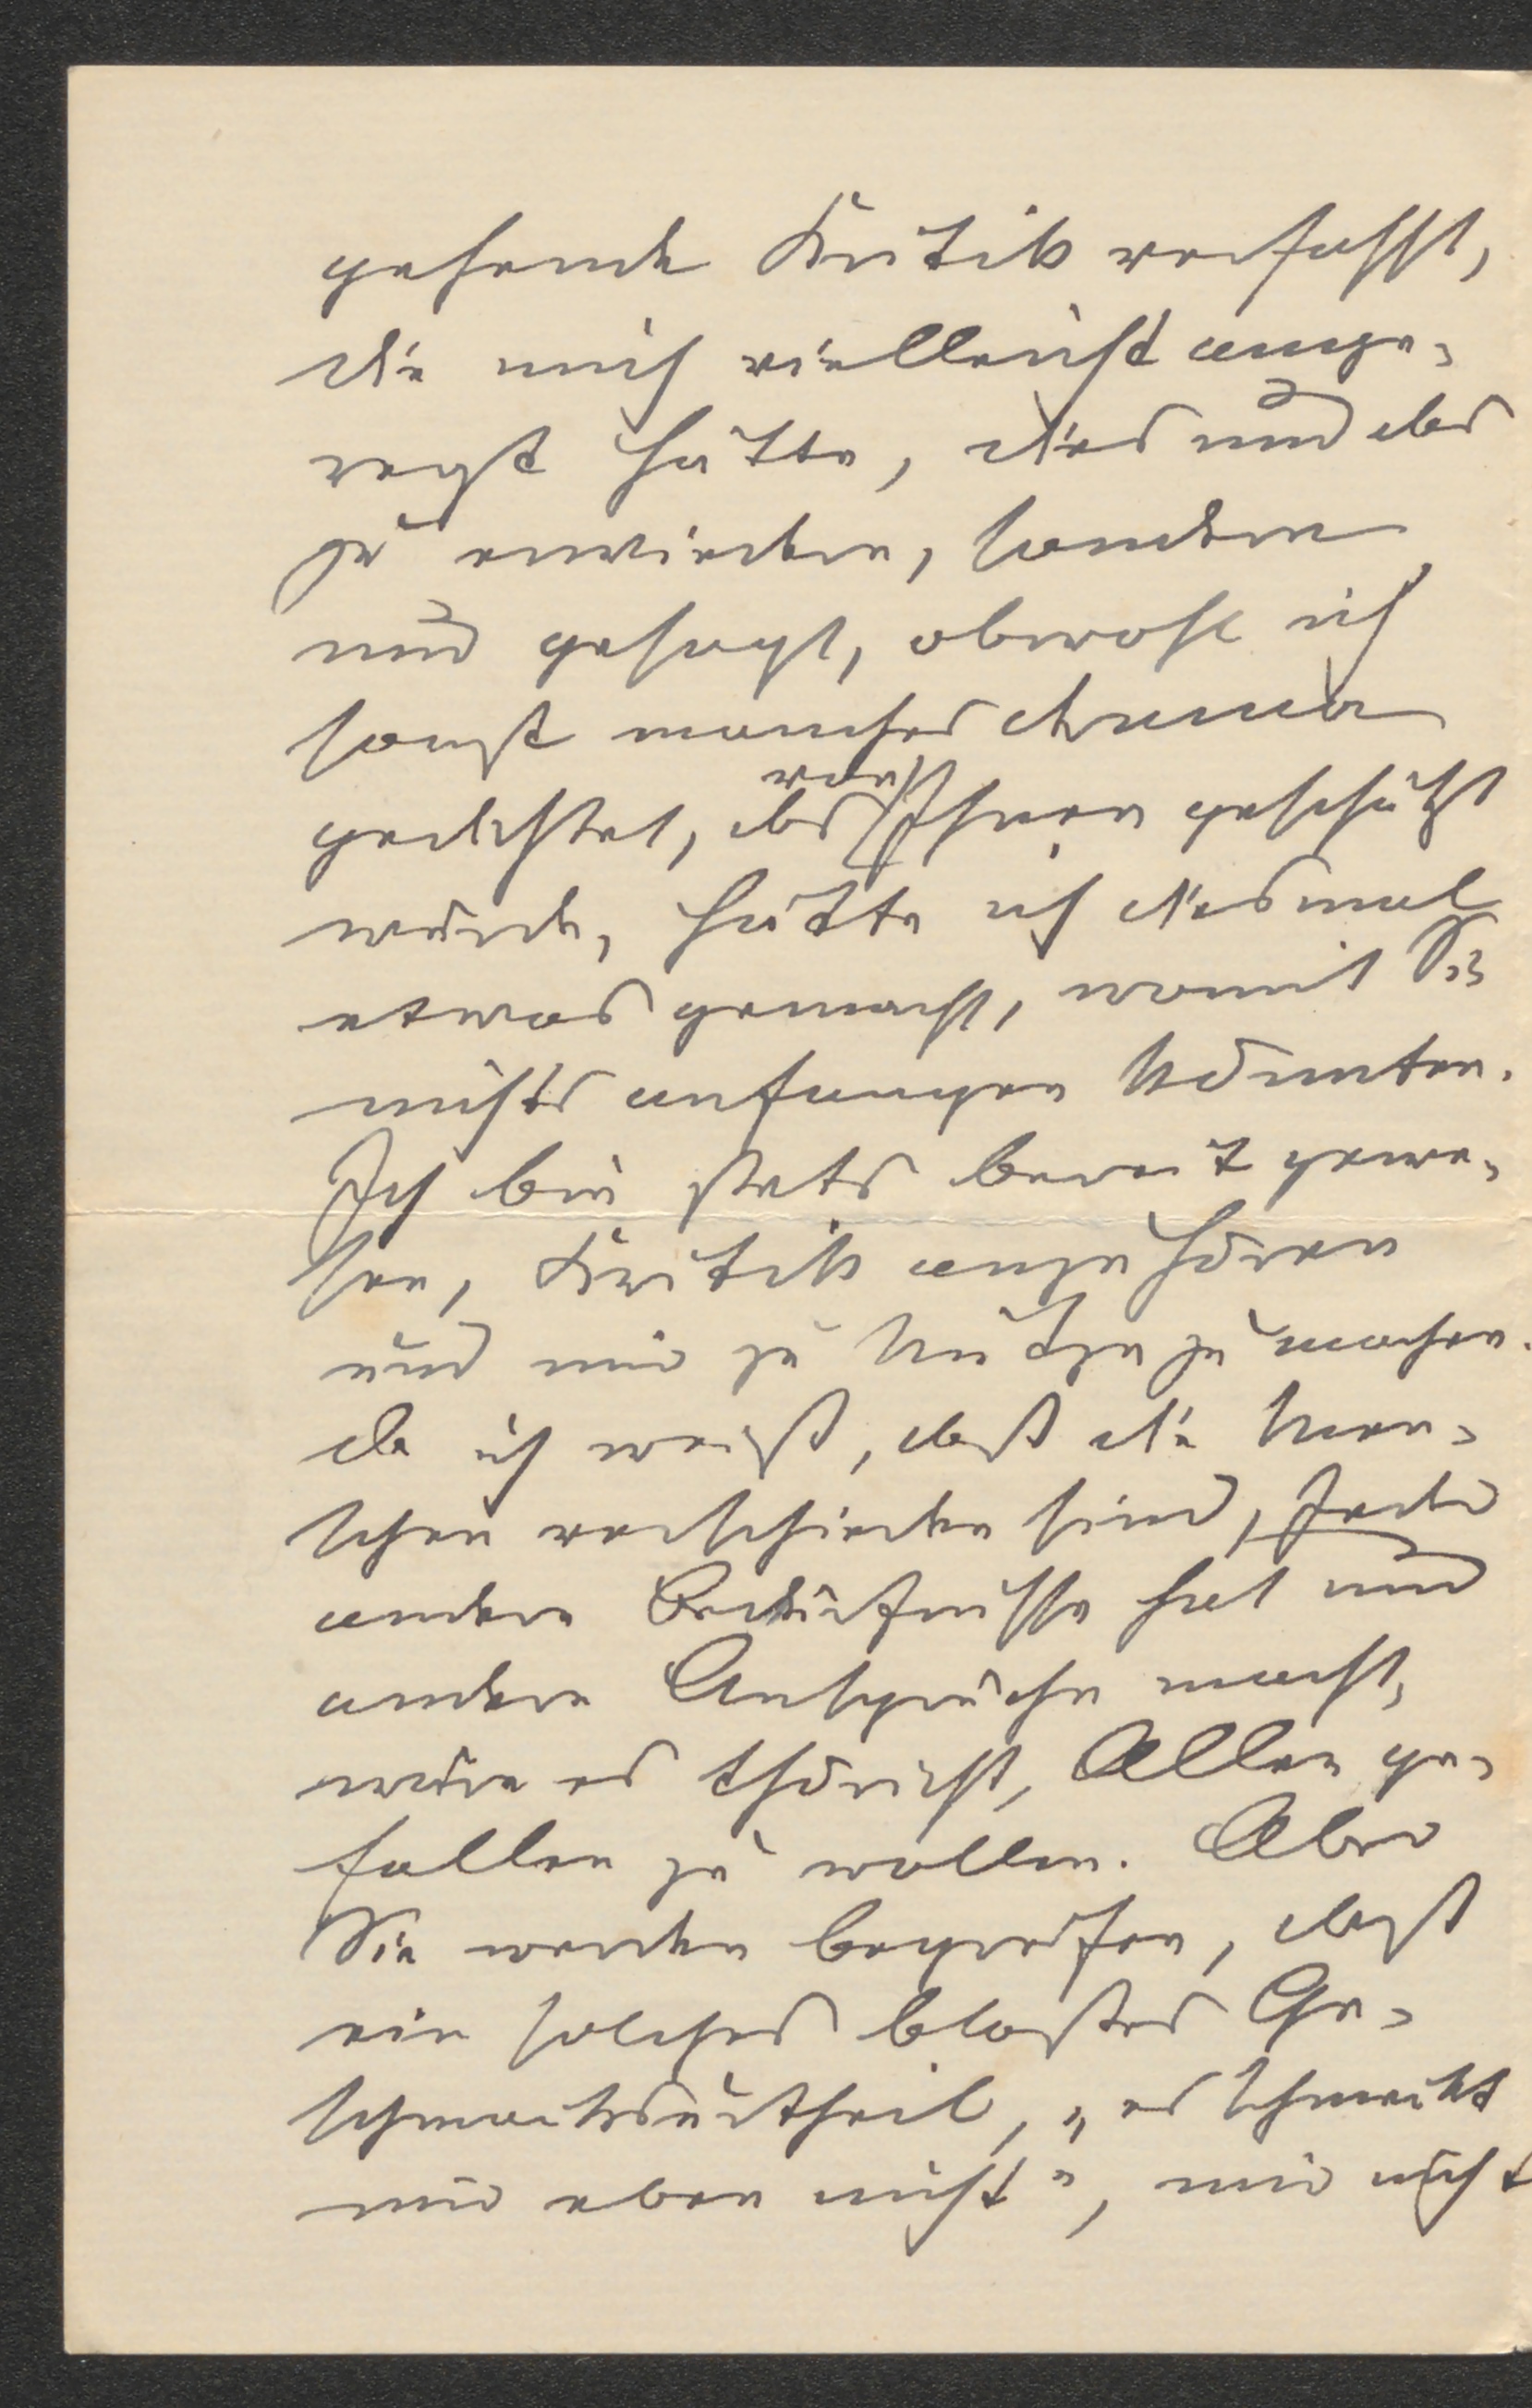 gehende Kritik verfasst,
die mich vielleicht ange-
regt hätte, dies und das
zu erwiedern, sondern
nur gesagt, obwohl ich
sonst manches drama
gedichtet, das von Ihnen geschätzt
wurde, hätte ich diesmal
etwas gemacht, womit Sie
nichts anfangen könnten.
Ich bin stets bereit gewe-
sen, Kritik anzuhören
und mir zu Nutze zu machen.
da ich weiß, daß die Men-
schen verschieden sind, Jeder
andere Bedürfnisse hat und
andere Ansprüche macht,
wäre es thöricht, Allen ge-
fallen zu wollen. Aber
Sie werden begreifen, daß
ein solches bloßes Ge-
schmacksurtheil, „es schmeckt
mir eben nicht", mir nicht